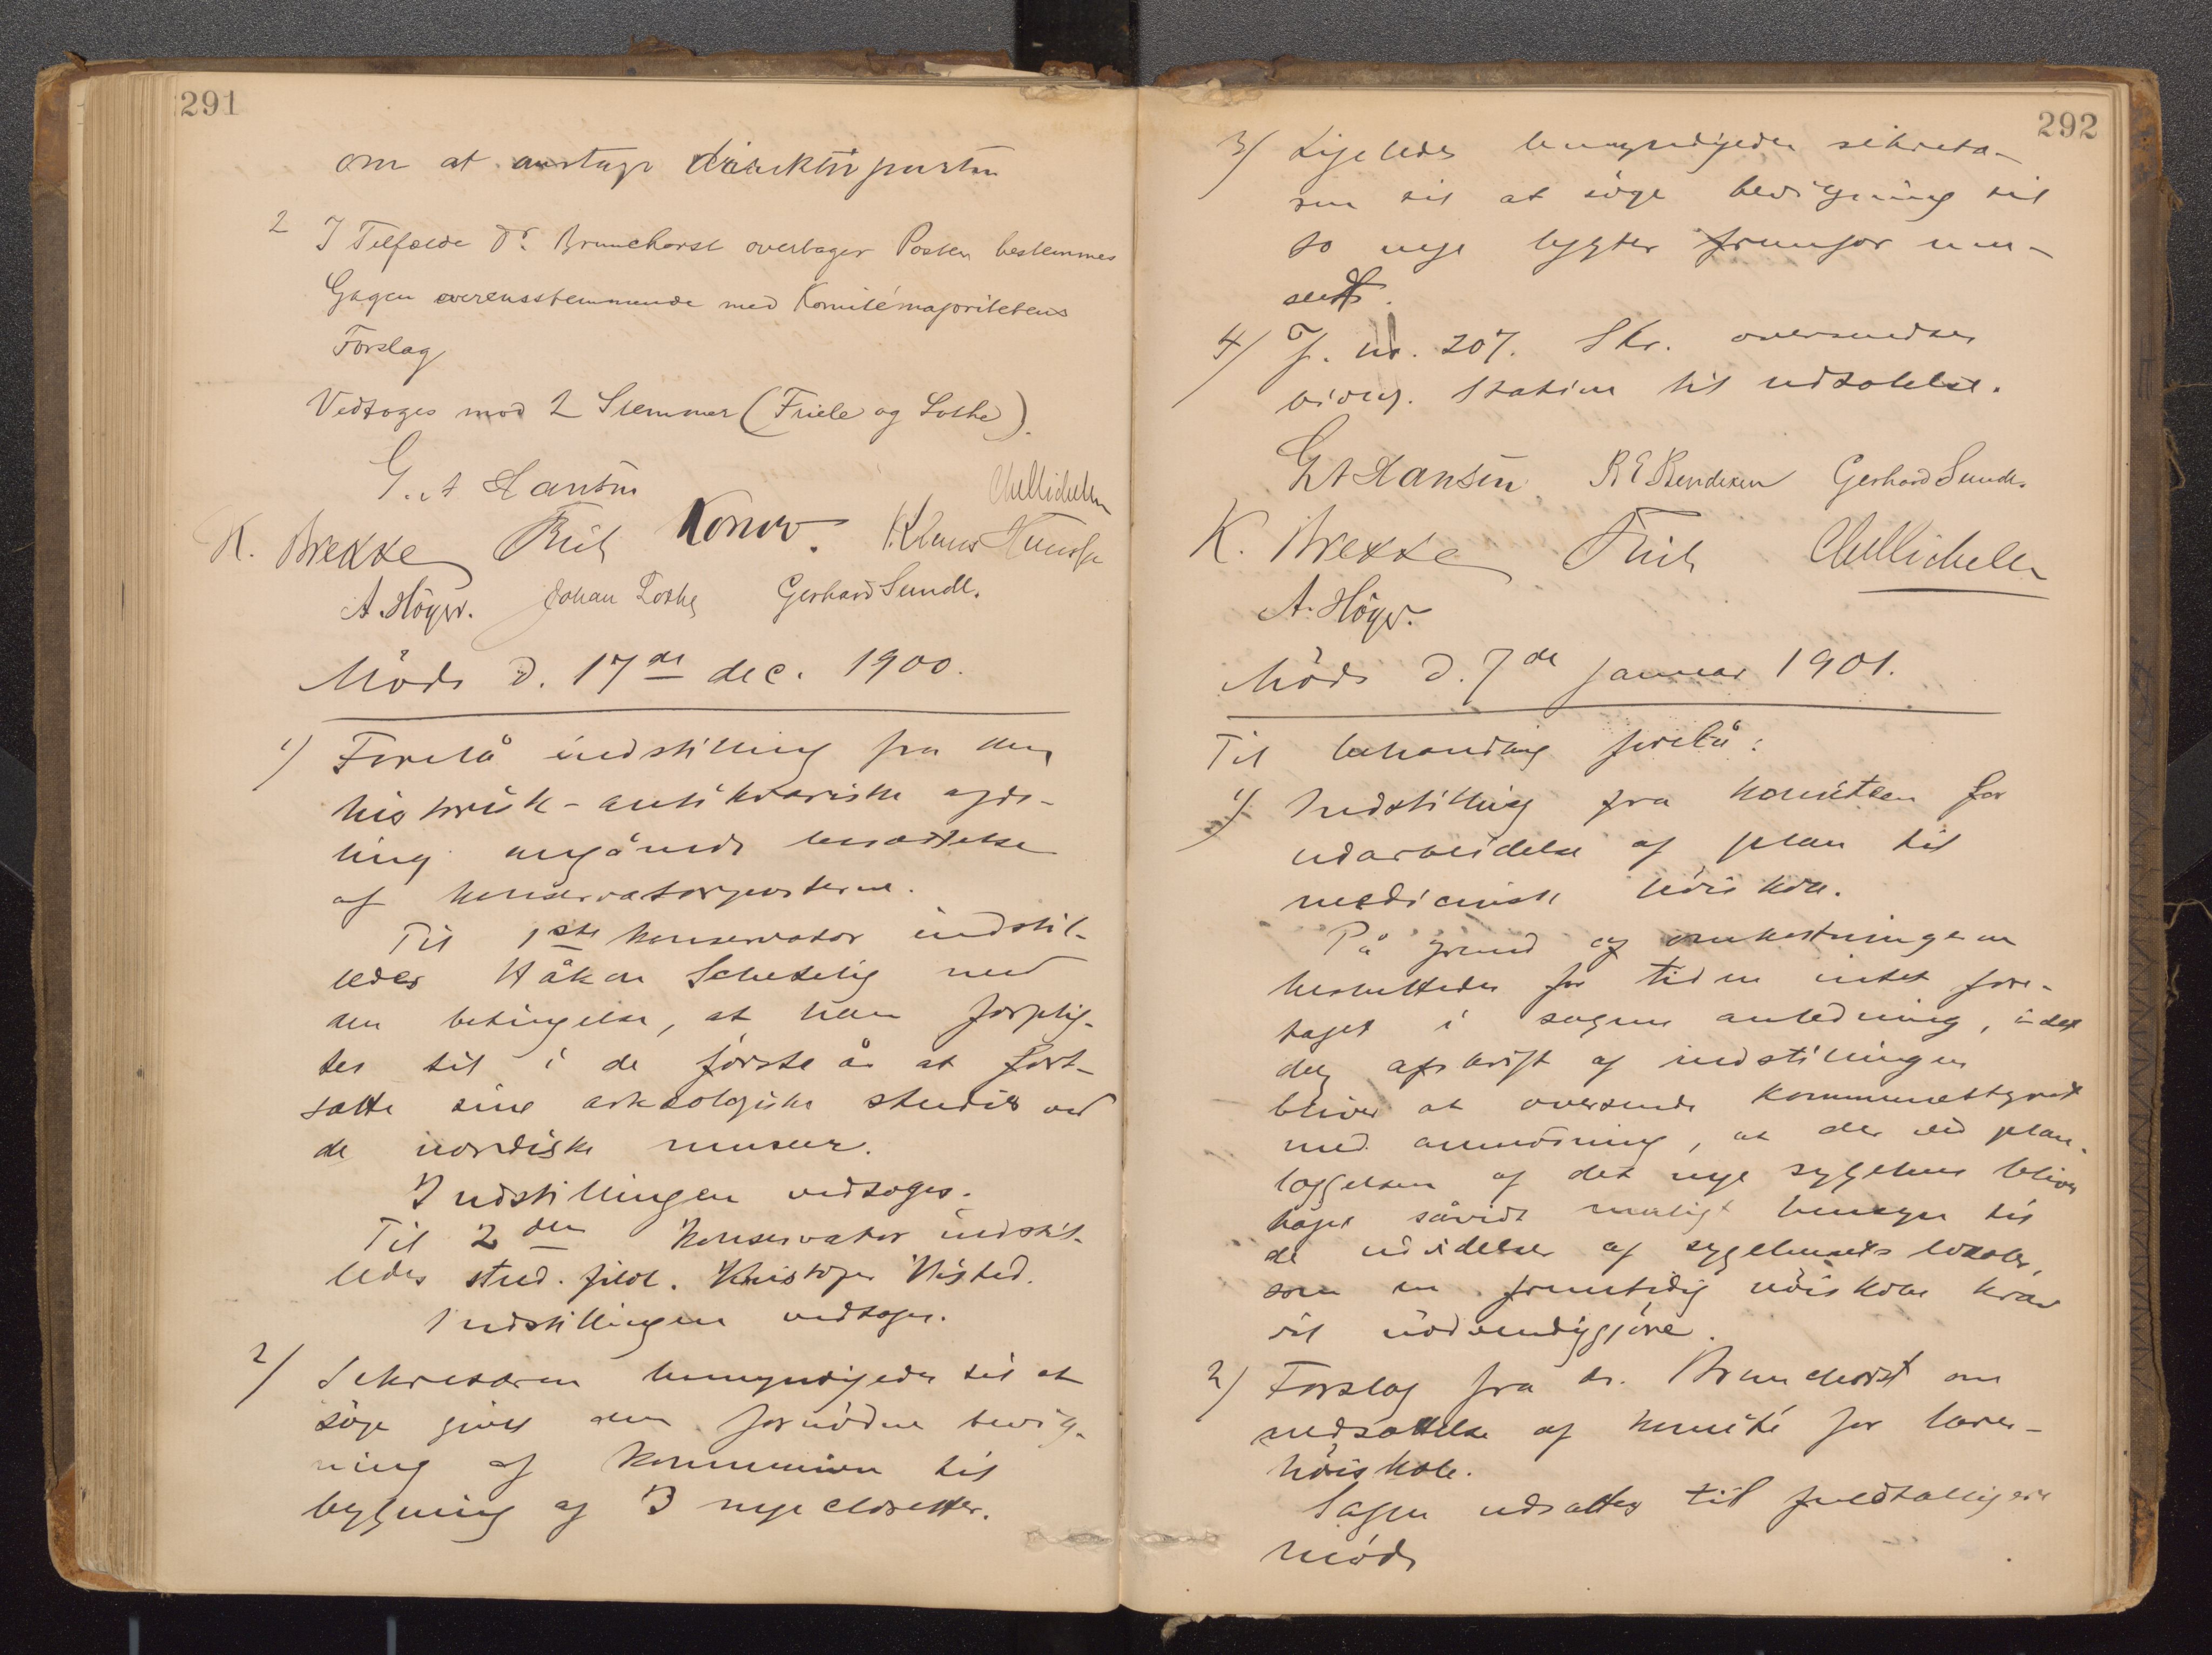 291
om at modtage direktörposten
2 I Tilfælde Dr. Brunchorst overtager Posten bestemmes
Gagen overensstemmende med Komitémajoritetens
Forslag
Vedtoges mod 2 Stemmer (Friele og Lothe).
G. A Hansen
K. Brekke Friele Konow. Klaus Hanssen Chr Michelsen
A. Höyer. Johan Lothe Gerhard Sundt.
Möde d. 17de dec. 1900.
1) Forelå indstilling fra den
historisk-antikvariske afde-
ling angående besættelse
af konservatorposterne.
Til 1ste konservator indstil-
ledes Håkon Schetelig med
den betingelse, at han forplig-
tes til i de første år at fort-
sætte sine arkæologiske studier ved
de nordiske museer.
Indstillingen vedtoges.
Til 2den konservator indstil-
ledes stud. filol. Kristofer Visted.
Indstillingen vedtoges.
2) Sekretæren bemyndigedes til at
söge givet den fornödne bevilg-
ning af kommunen til
bygning af 3 nye closetter.
292
3) Ligeledes bemyndigedes sekretæ-
ren til at söge bevilgning til
to nye lygter fremfor mu-
seet.
4) J. nr. 207. Skr. oversendes
biolog. station til udtalelse.
G A Hansen R E Bendixen Gerhard Sundt.
K. Brekke Friele Chr Michelsen
A. Höyer.
Möde d. 7de januar 1901.
Til behandling forelå:
1) Indstilling fra komiteen for
udarbeidelse af plan til
medicinsk höiskole.
På grund af omkostningerne
besluttedes for tiden intet fore-
taget i sagens anledning, idet
dog afskrift af indstillingen
bliver at oversende kommunestyret
med anmodning, at der ved plan-
læggelsen af det nye sygehus bliver
taget såvidt muligt hensyn til
de udvidelser af sygehusets lokaler,
som en fremtidig höiskole krav
vil nödvendiggjöre.
2) Forslag fra dr. Brunchorst om
nedsættelse af komité for lærer-
höiskole.
Sagen udsattes til fuldtalligere
möde